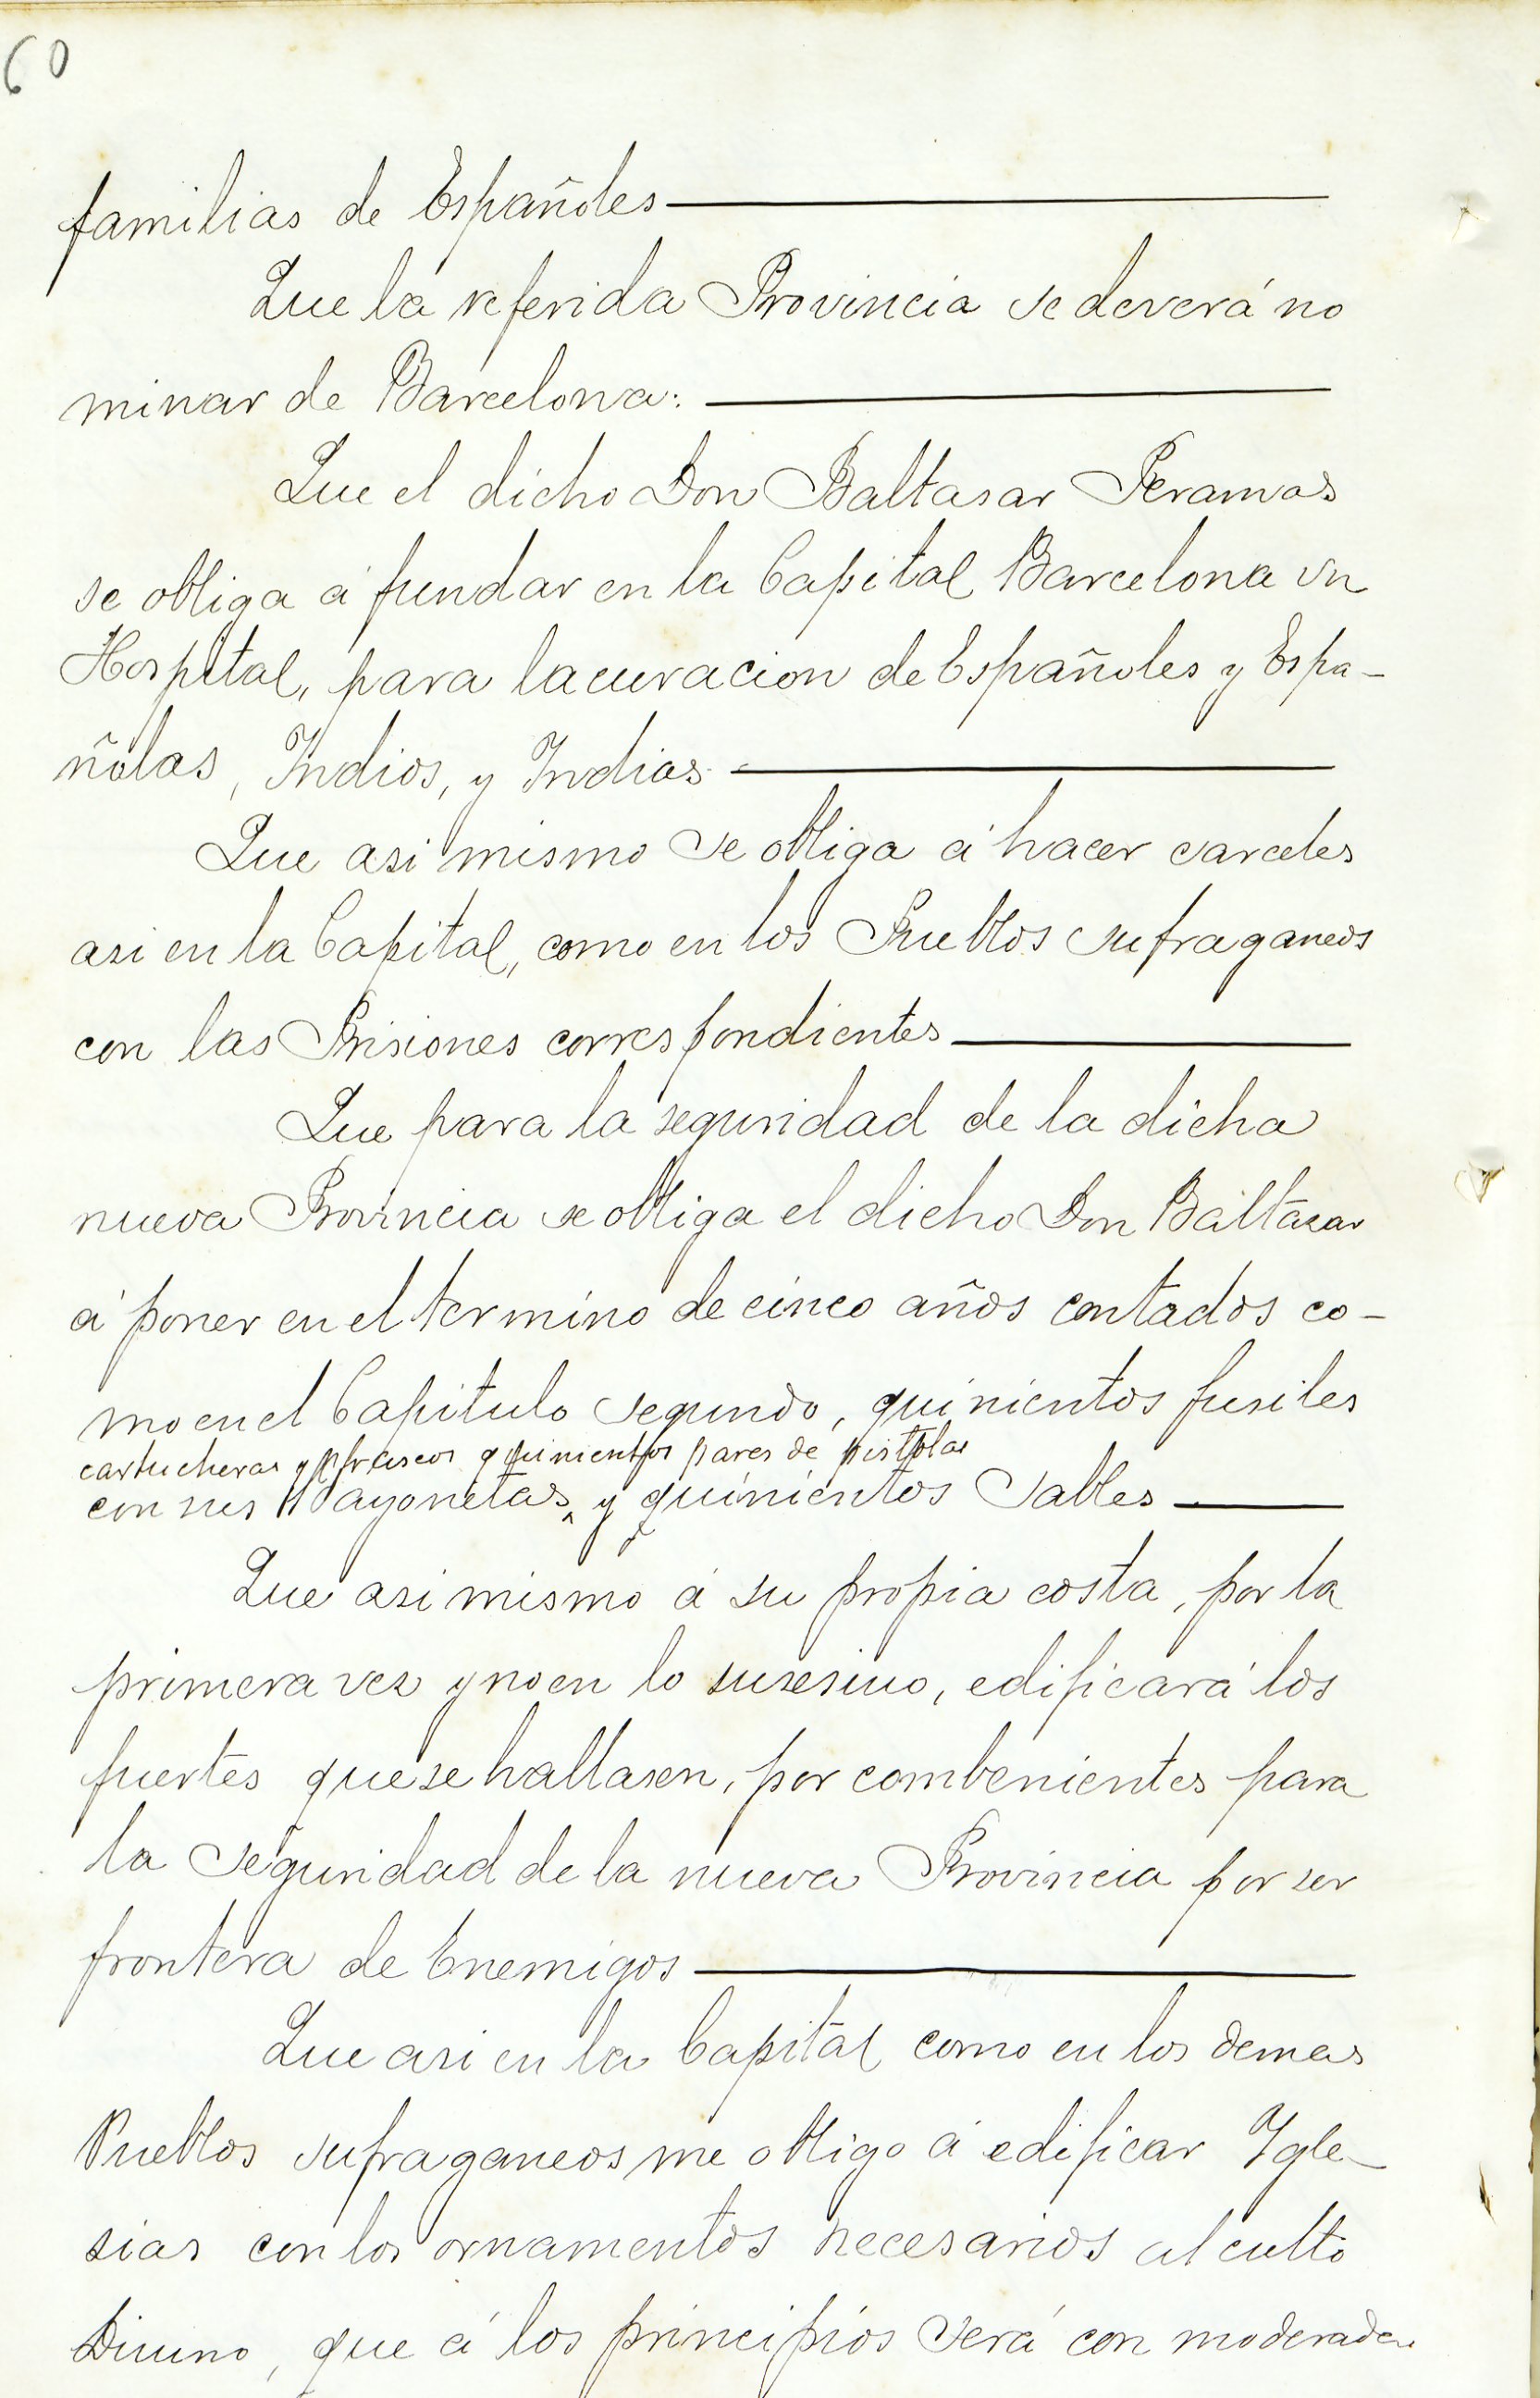 60
familias de Españoles
Que la referida Provincia se deverá no
minar de Barcelona.
Que el dicho Don Baltasar Peramas
se obliga á fundar en la Capital Barcelona vn
Hospital, para la curacion de Españoles y Espa-
ñolas, Indios, y Indias
Que asi mismo se obliga á hacer carceles
asi en la Capital, como en los Pueblos sufraganeos
con las Prisiones correspondientes
Que para la seguridad de la dicha
nueva Provincia se obliga el dicho Don Baltasar
á poner en el termino de cinco años contados co-
mo en el Capitulo segundo, quinientos fusiles
cartucheras y frascos quinientos pares de pistolas
con sus Bayonetas, y quinientos Sables
Que asi mismo á su propia costa, por la
primera vez y no en lo susesiuo, edificará los
fuertes que se hallasen, por combenientes para
la seguridad de la nueva Provincia por ser
frontera de Enemigos
Que asi en la Capital como en los demas
Pueblos sufraganeos me obligo á edificar Ygle-
sias con los ornamentos necesarios al culto
Diuino, que á los principios será con moderada